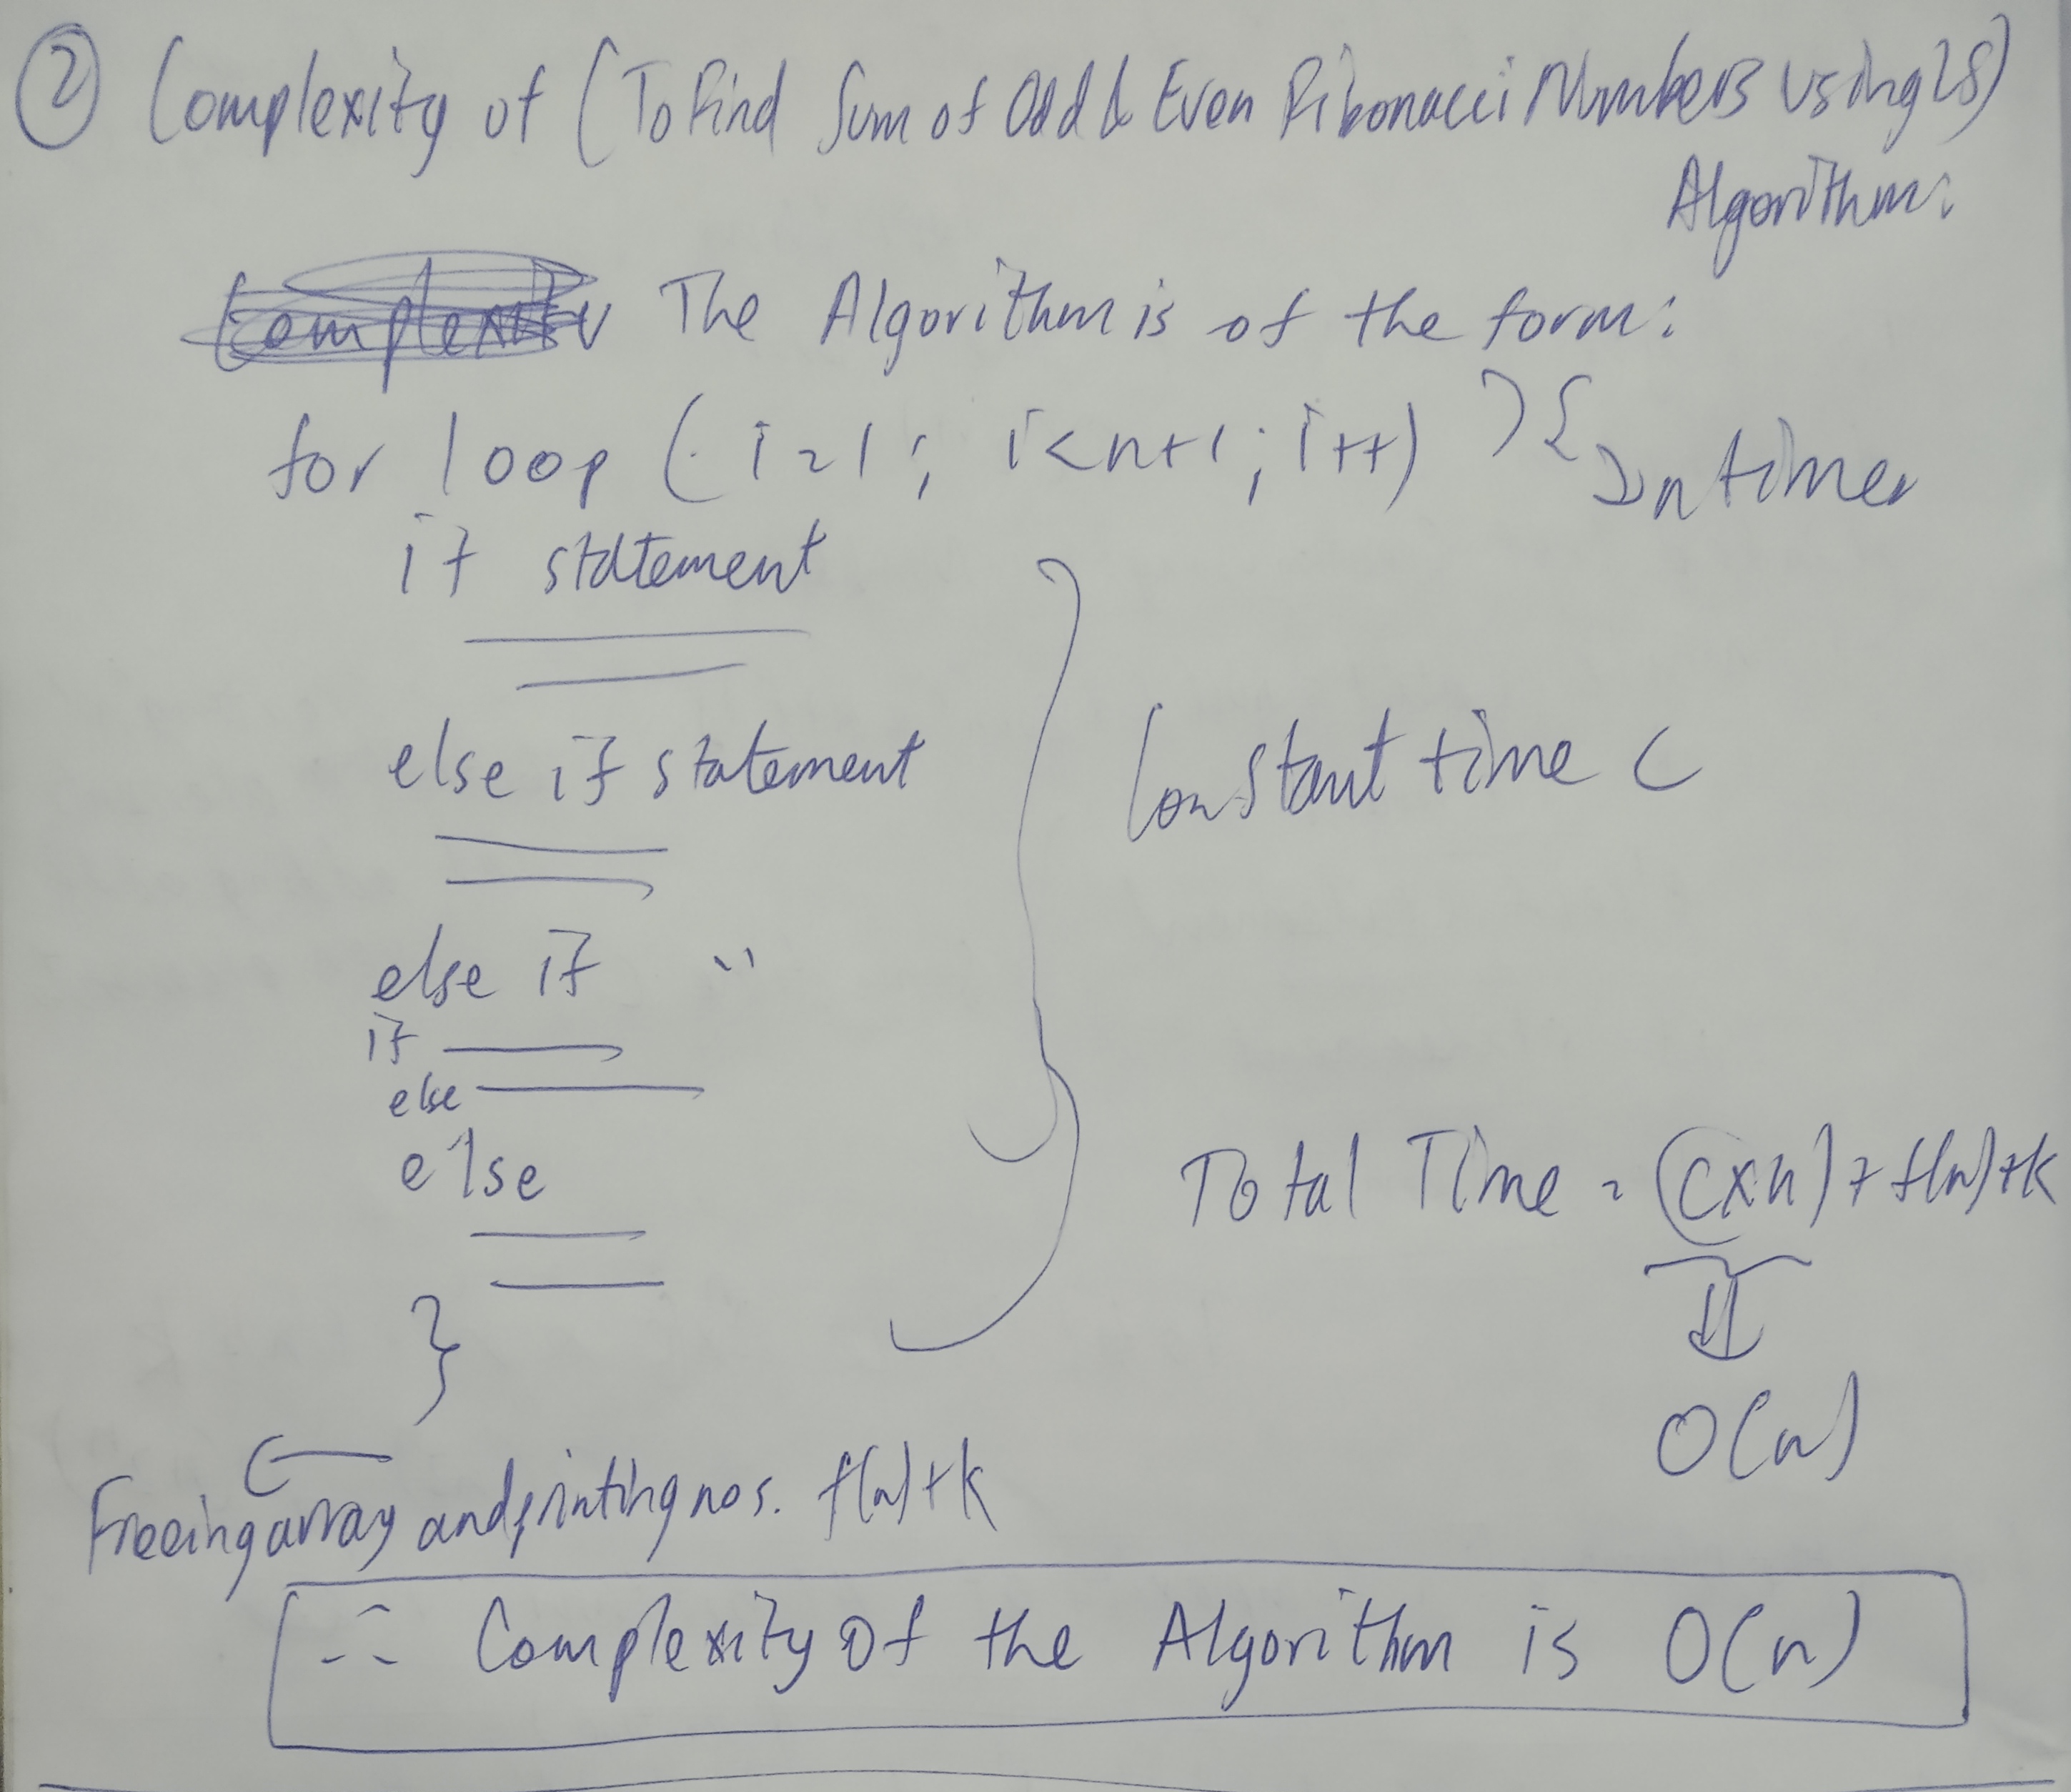 ② Complexity of (To Find Sum of Odd & Even Fibonacci Numbers using 28)
Algorithm:
The Algorithm is of the form:
for loop (i=1; i<n+1; i++) ){ n times
if statement
else if statement
Constant time C
else if "
if
else
else
Total Time = (C×n) + f(n)+k
}
O(n)
Freeing array and printing nos. f(n)+k
∴ Complexity of the Algorithm is O(n)